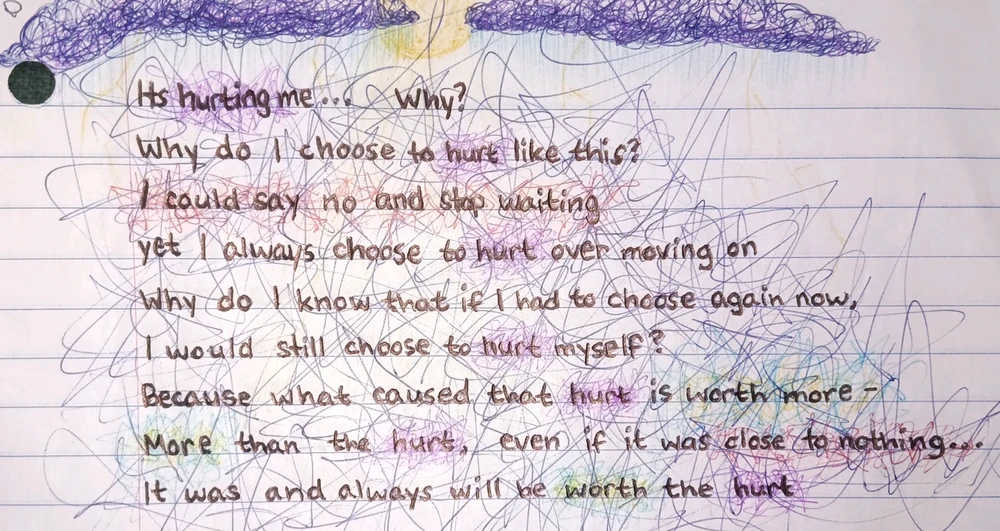 Its hurting me... Why?
Why do I choose to hurt like this?
I could say no and stop waiting
yet I always choose to hurt over moving on
Why do I know that if I had to choose again now,
I would still choose to hurt myself?
Because what caused that hurt is worth more -
More than the hurt, even if it was close to nothing...
It was and always will be worth the hurt